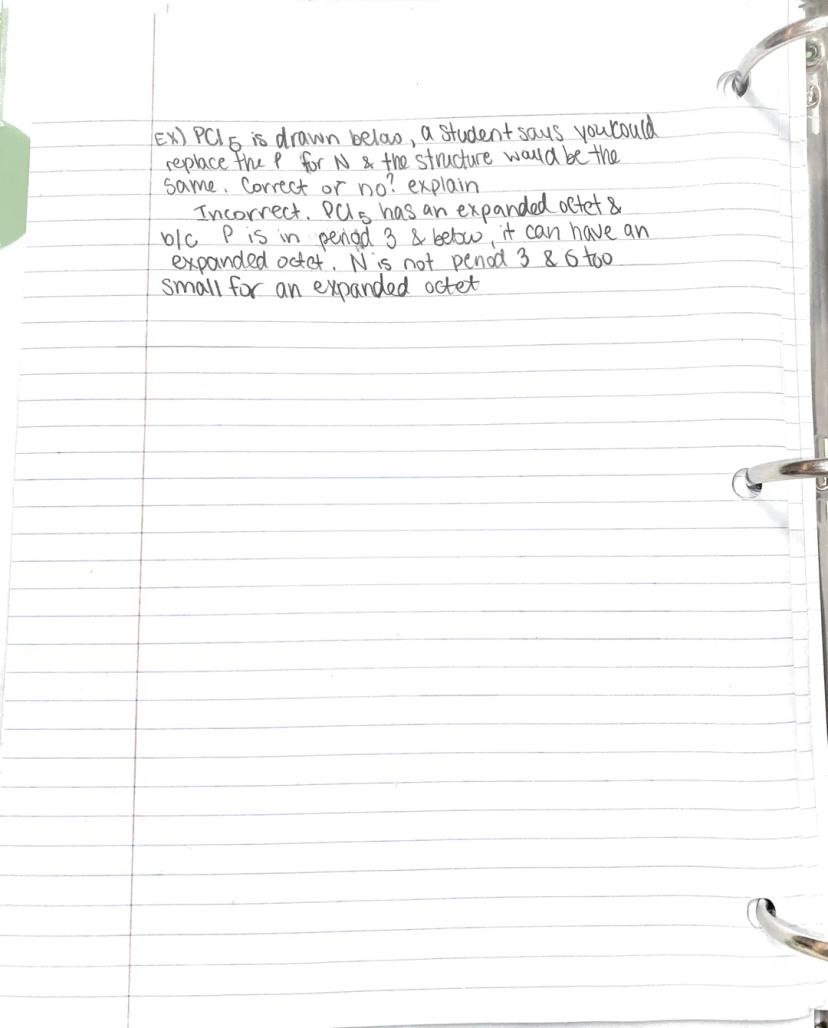 EX) PCl5 is drawn below, a student says you could
replace the P for N & the structure would be the
same. Correct or no? explain
Incorrect. PCl5 has an expanded octet &
b/c P is in period 3 & below, it can have an
expanded octet. N is not period 3 & is too
small for an expanded octet